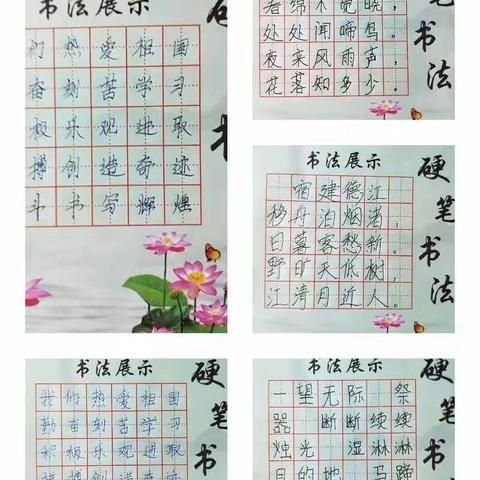 书法展示
们热爱祖国
奋刻苦学习
极乐观进取
搏创造奇迹
斗书写辉煌
不觉晓,
处处闻啼鸟。
夜来风雨声,
花落知多少。
笔书法
书法展示
宿建德江
移舟泊烟渚,
日暮客愁新。
野旷天低树,
江清月近人。
硬笔书法
书法展示
我们热爱祖国
勤奋刻苦学习
积极乐观进取
搏创造奇
硬笔书
书法展示
一望无际 祭
器 断断续续
烛光 湿淋淋
目的地 马蹄
硬笔书